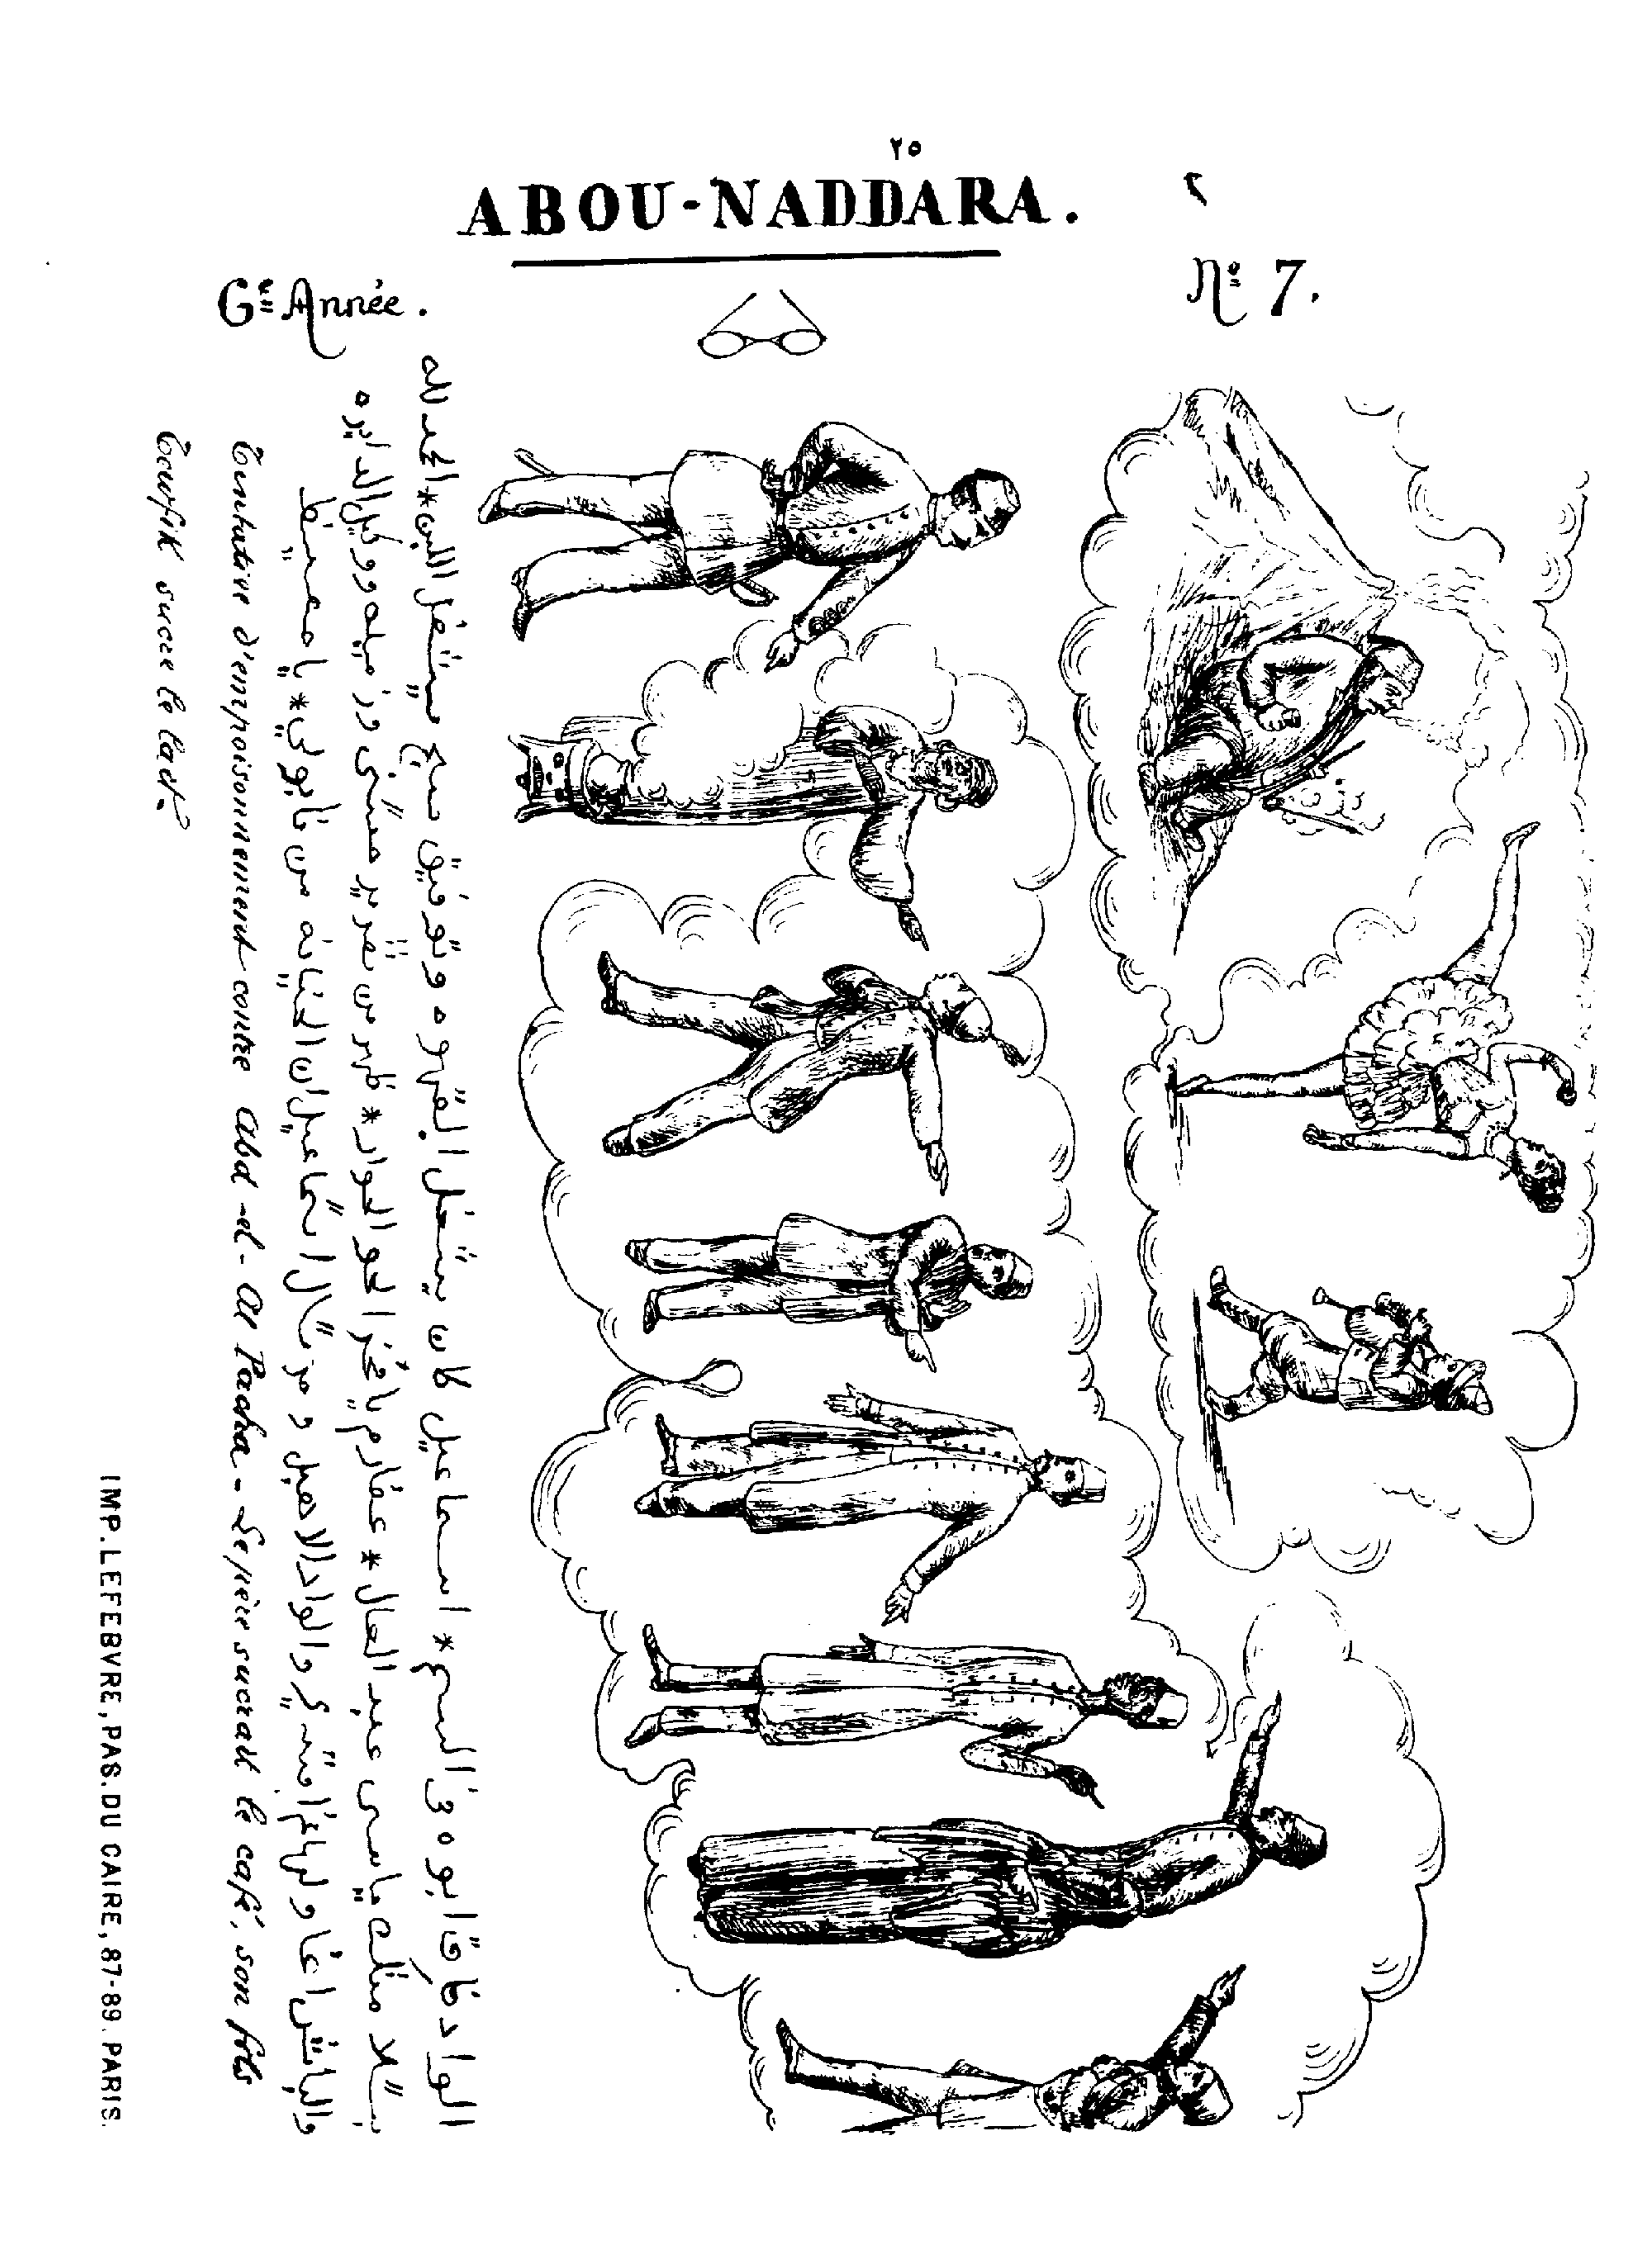 ٢٥
ABOU-NADDARA.
6ᵉ Année.
Nº 7.
الواد فاق ابوه في السم * اسماعيل كان بيشغل القهوه وتوفيق صبح بيشغل اللبن * الحمد لله
مثله ياسي عبد العال * عفارم يا فخر الجوار * ظهر من تقرير حسني وزميله ووكيل الدايره
والباش اغا افندي والواد الاهبل اسماعيل ان الخيانه من نابولي * يا حفيظ
Tentative d'empoisonnement contre Abd-el-Al Pacha - Le père sucrait le café, son fils
Toufik sucre le lait.
IMP. LEFEBVRE, PAS. DU CAIRE, 87-89. PARIS.